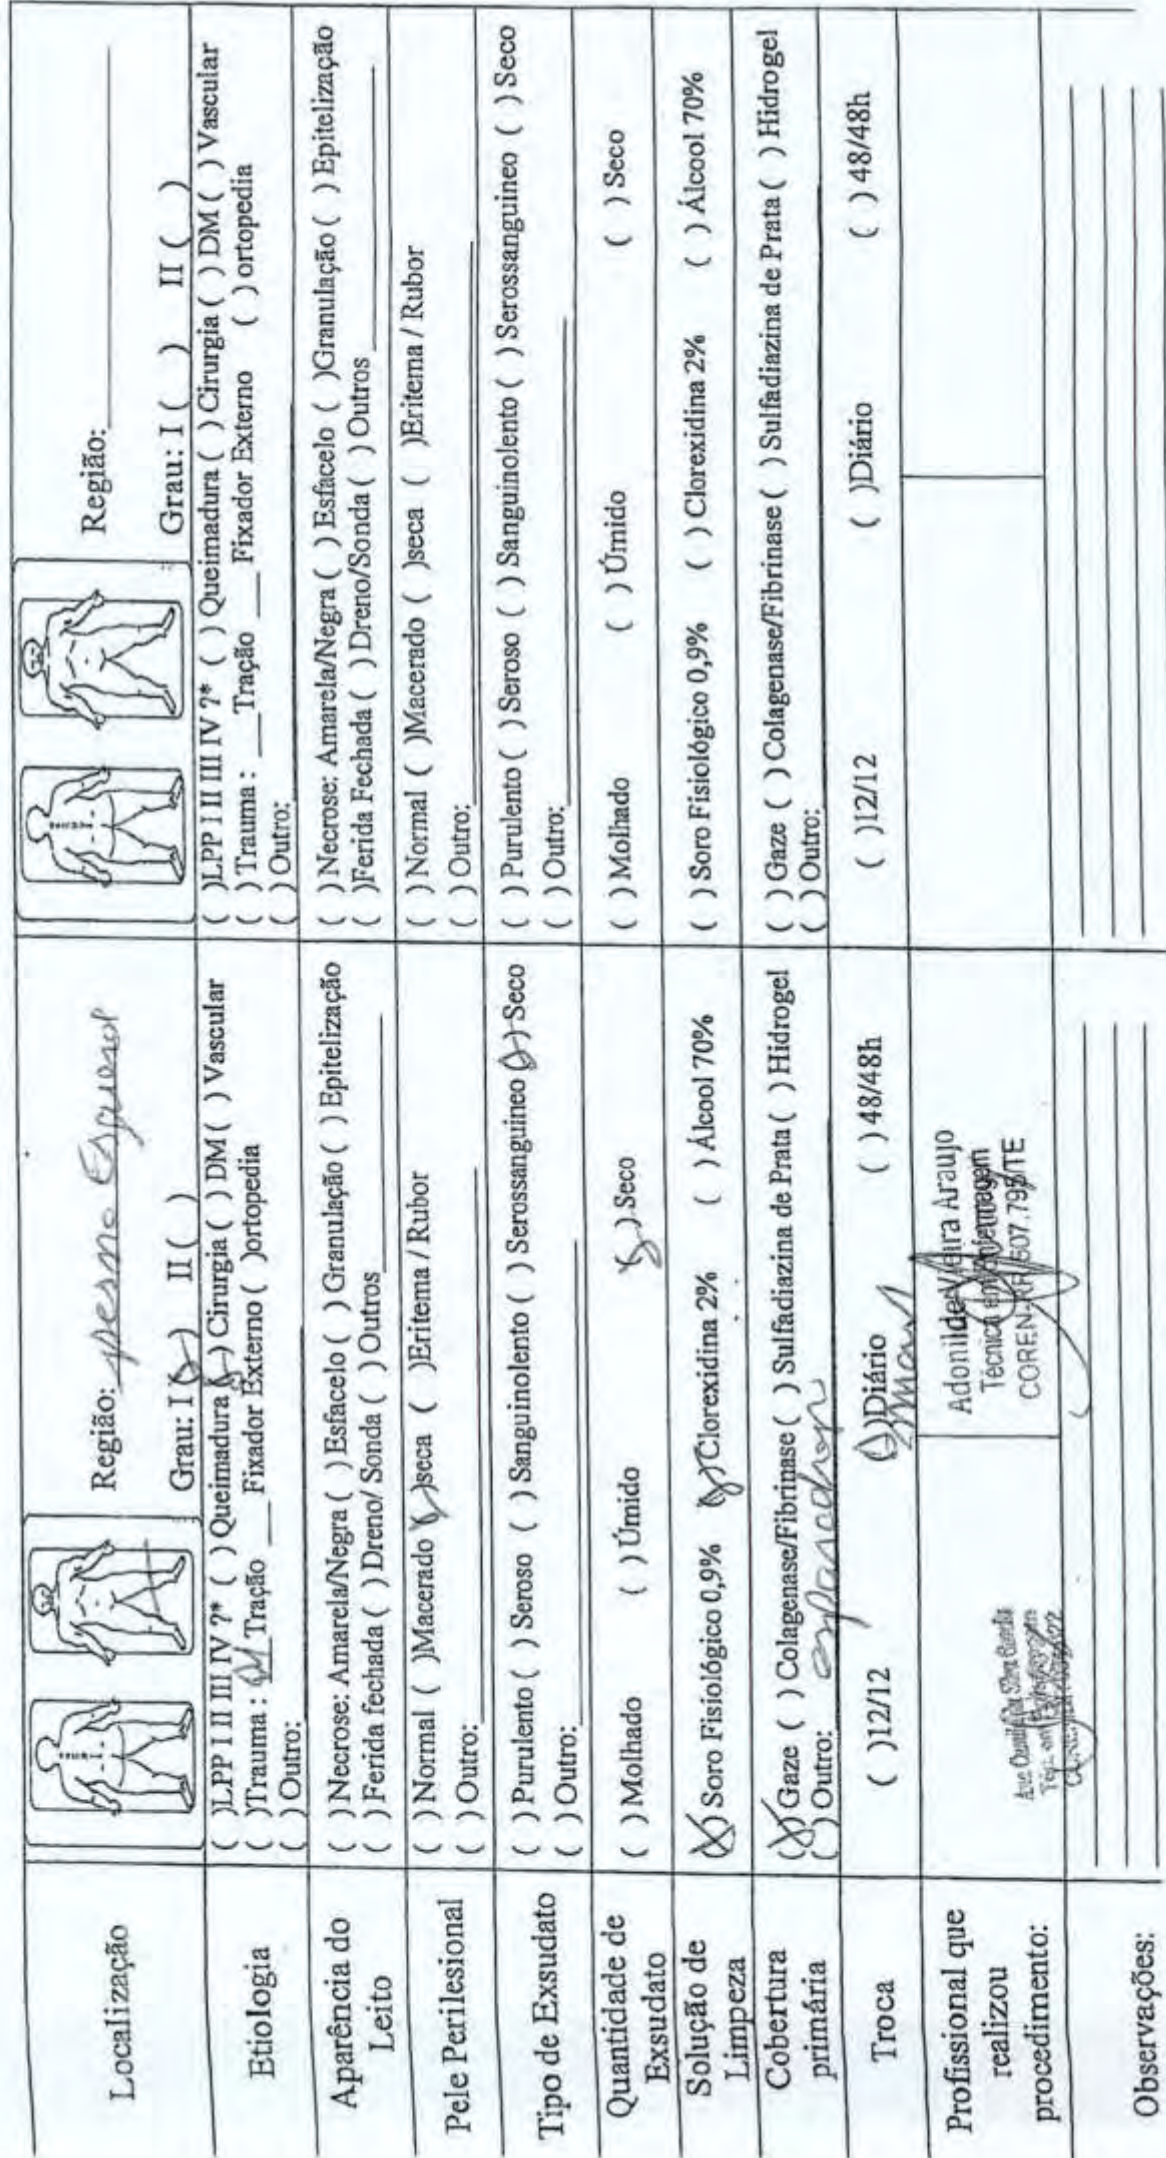 Localização
Região: perna Esquerda
Grau: I (X) II ( )
Região:
Grau: I ( ) II ( )
Etiologia
( )LPP I II III IV ?* ( ) Queimadura (X) Cirurgia ( ) DM ( ) Vascular
( )Trauma : Tração ___Fixador Externo ( )ortopedia
( ) Outro:
( )LPP I II III IV ?* ( ) Queimadura ( ) Cirurgia ( ) DM ( ) Vascular
( ) Trauma : ___Tração ___Fixador Externo ( ) ortopedia
( ) Outro:
Aparência do
Leito
( ) Necrose: Amarela/Negra ( ) Esfacelo ( ) Granulação ( ) Epitelização
( ) Ferida fechada ( ) Dreno/ Sonda ( ) Outros
( ) Necrose: Amarela/Negra ( ) Esfacelo ( )Granulação ( ) Epitelização
( )Ferida Fechada ( ) Dreno/Sonda ( ) Outros
Pele Perilesional
( ) Normal ( )Macerado (X)seca ( )Eritema / Rubor
( ) Outro:
( ) Normal ( )Macerado ( )seca ( )Eritema / Rubor
( ) Outro:
Tipo de Exsudato
( ) Purulento ( ) Seroso ( ) Sanguinolento ( ) Serossanguineo (X) Seco
( ) Outro:
( ) Purulento ( ) Seroso ( ) Sanguinolento ( ) Serossanguineo ( ) Seco
( ) Outro:
Quantidade de
Exsudato
( ) Molhado ( ) Úmido (X) Seco
( ) Molhado ( ) Úmido ( ) Seco
Solução de
Limpeza
(X) Soro Fisiológico 0,9% (X) Clorexidina 2% ( ) Álcool 70%
( ) Soro Fisiológico 0,9% ( ) Clorexidina 2% ( ) Álcool 70%
Cobertura
primária
(X) Gaze ( ) Colagenase/Fibrinase ( ) Sulfadiazina de Prata ( ) Hidrogel
( ) Outro:
( ) Gaze ( ) Colagenase/Fibrinase ( ) Sulfadiazina de Prata ( ) Hidrogel
( ) Outro:
Troca
( )12/12 (X)Diário ( ) 48/48h
( )12/12 ( )Diário ( ) 48/48h
Profissional que
realizou
procedimento:
Adonilde Vieira Araujo
Técnica em Enfermagem
COREN-RR 607.795/TE
Observações: